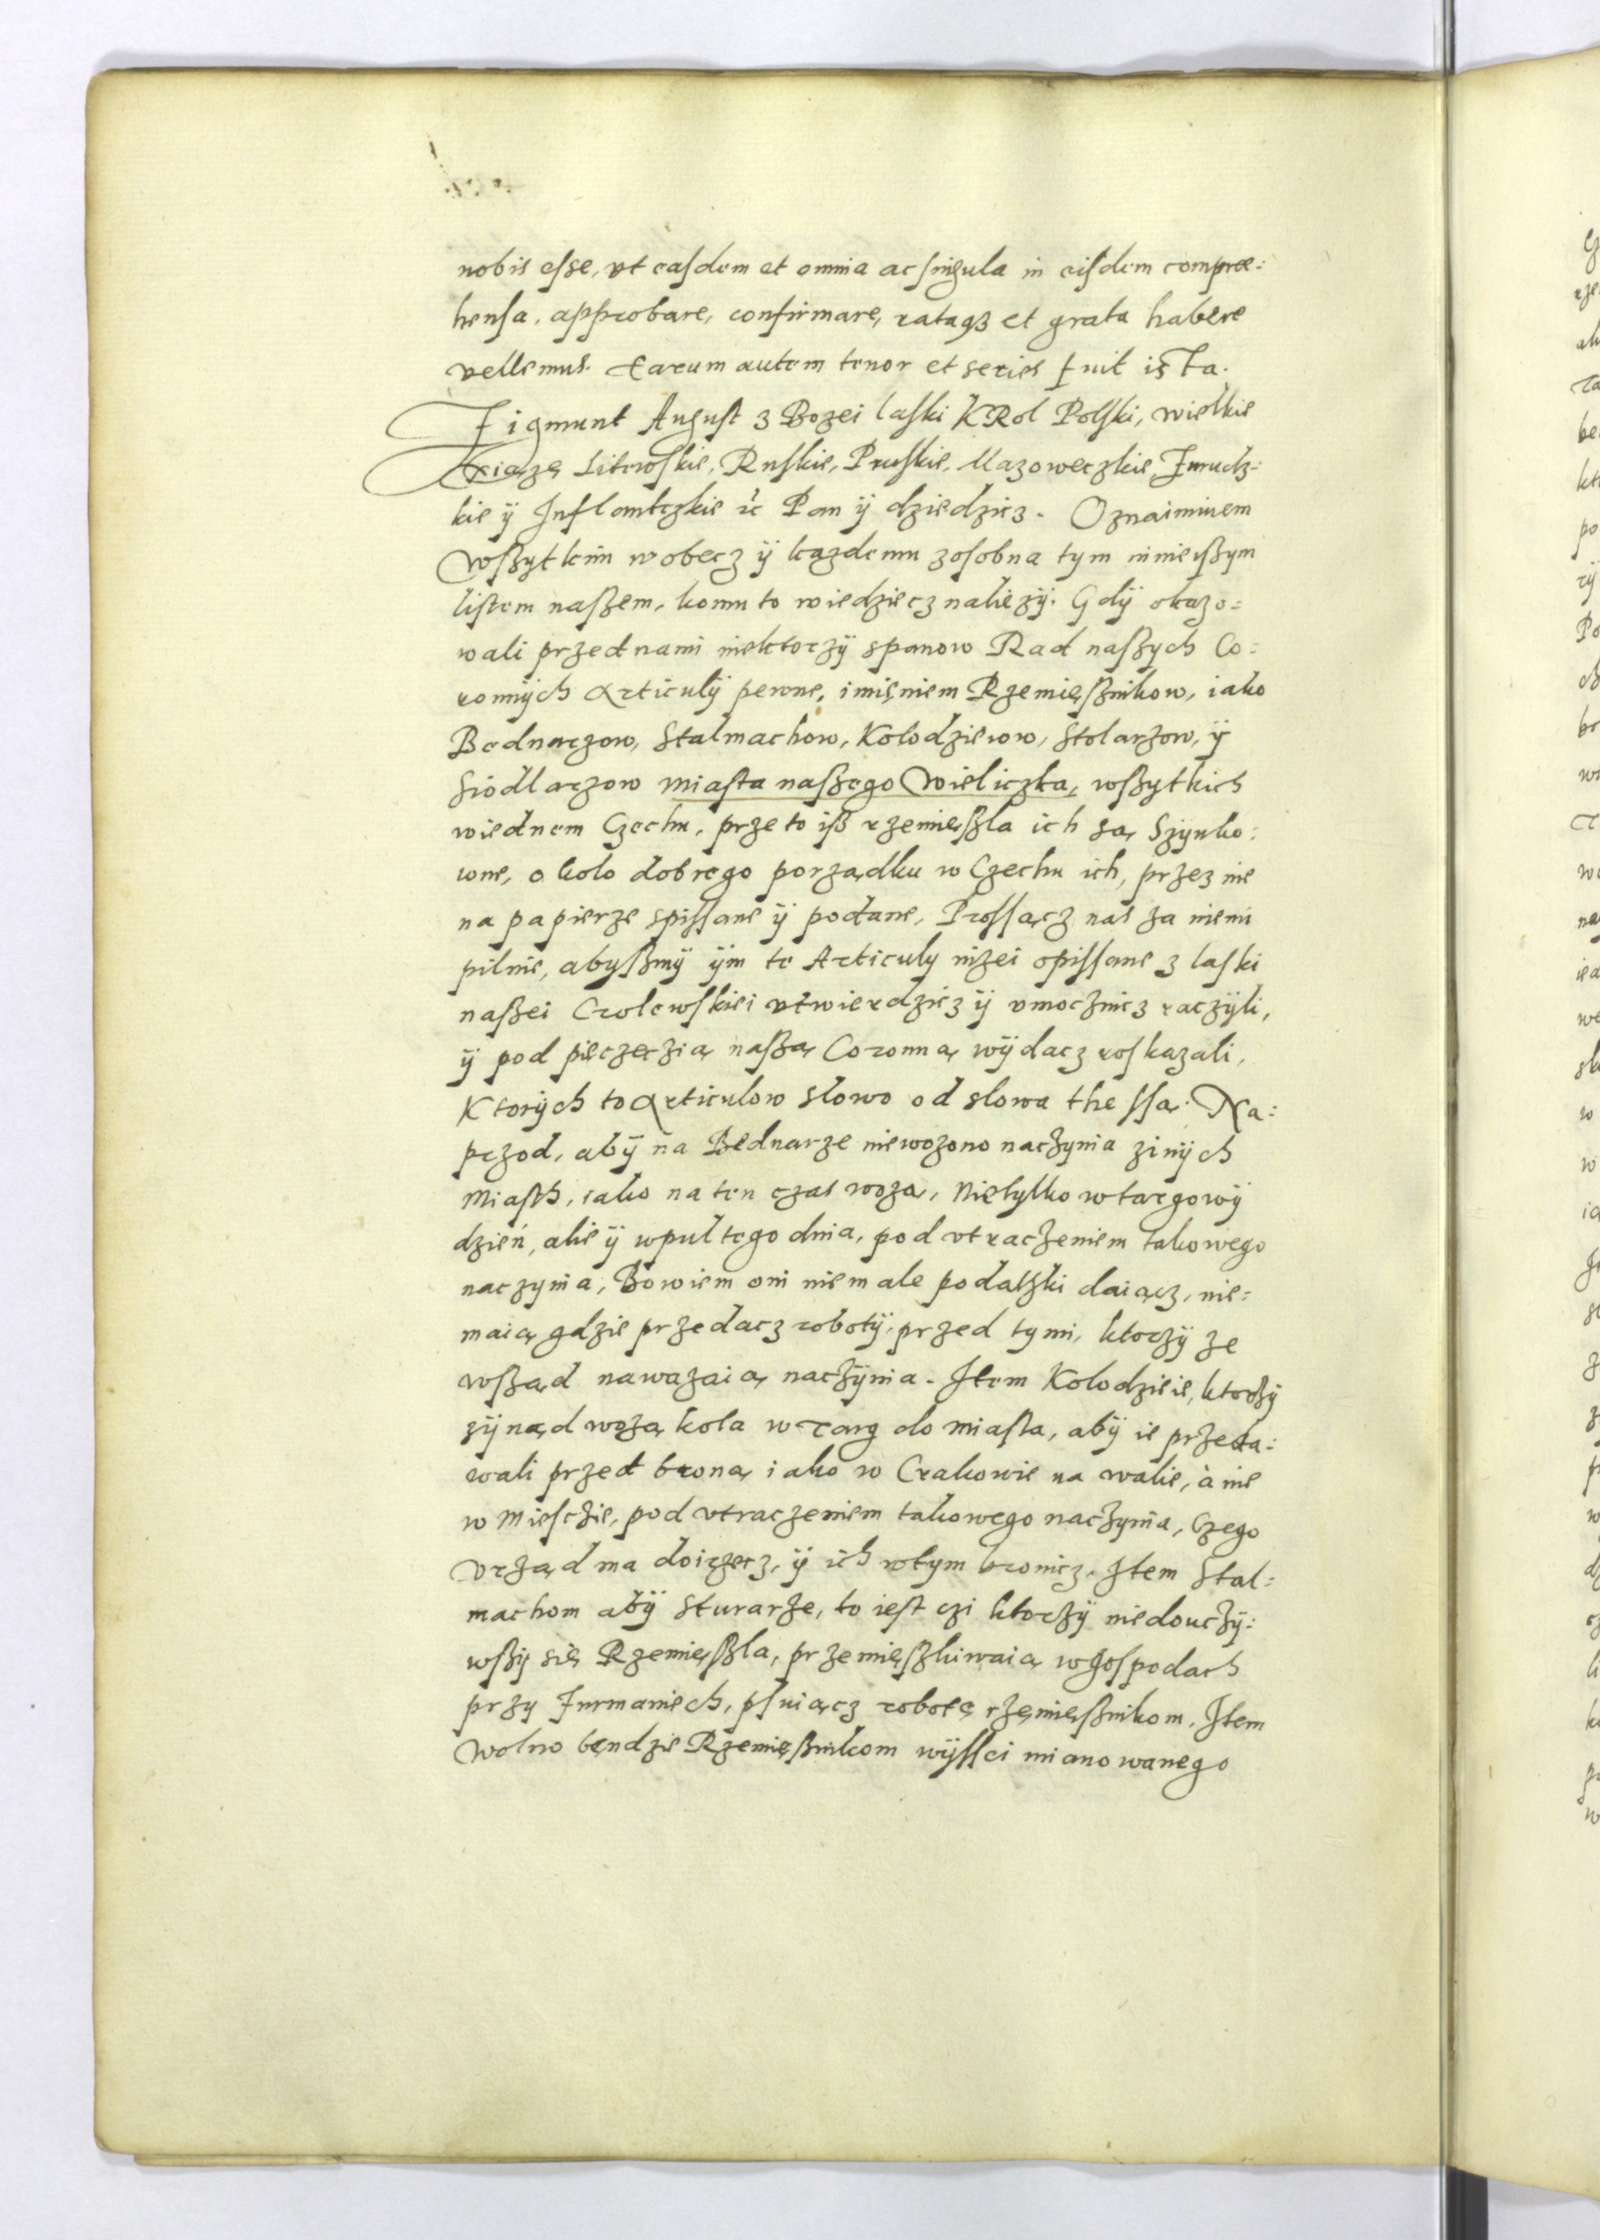 nobis esse, vt easdem et omnia ac singula in eisdem compræ:
hensa, approbare, confirmare, rataqȝ et grata habere
vellemus. Earum autem tenor et series fuit ista.
Zigmunt August z Bozei laski KRol Polski, wielkie
Xciąze Litewskie, Ruskie, Pruskie, Mazoweczkie, Zmudz:
kie ÿ Inflantczkie ꝛc Pan ÿ dziedzicz. Oznaimuiem
wßzytkim wobecz ÿ kazdemu zosobna tym ninieißzym
listem naßzem, komu to wiedziecz nalieżÿ. Gdÿ okazo:
wali przed nami niektorzÿ spanow Rad naßzych Co:
ronnÿch Articulÿ pewne, imięniem Rzemięßnikow, iako
Bednarzow, Stalmachow, Kolodzieiow, Stolarzow, ÿ
Siodlarzow miasta naßzego Wieliczka, wßzytkich
wiednem Czechu, prze to iß rzemięßla ich są Szynko:
wne, o kolo dobrego porządku w Czechu ich, przez nie
na papierze spissane ÿ podane, Prossącz nas za niemi
pilnie, abyßmÿ ÿm te Articuly niżei opissane z laski
naßzei Crolewskiei vtwierdzicz ÿ vmocznicz raczÿli,
ÿ pod pieczęczią naßzą Coronną wÿdacz roskazali,
Ktorÿch to Articulow slowo od slowa the ssą. Na:
przod, abÿ na Bednarze niewożono naczynia zinÿch
Miasth, iako na ten czas wożą, Nietylko wtargowÿ
dzień, alie ÿ wpul tego dnia, pod vtraczeniem takowego
naczynia, Bowiem oni niemale podatzki daiącz, nie:
maią gdzie przedacz robotÿ, przed tymi, ktorzÿ ze
wßząd nawazaią naczÿnia. Item Kolodzieie, ktorzÿ
zÿnąd wożą kola w Targ do Miasta, abÿ ie przeda:
wali przed broną iako w Crakowie na walie, à nie
w Miesczie, pod vtraczeniem takowego naczynia, Czego
vrząd ma doirzecz, ÿ ich wtym bronicz. Item Stal:
machom abÿ Sturarze, to iest czi ktorzÿ niedouczÿ:
wßzÿ się Rzemięßla, przemięßzkiwaią wgospodach
przy Furmaniech, psuiącz robotę rzemięßnikom. Item
Wolno bęndzie Rzemięßnikom wÿssei mianowanego